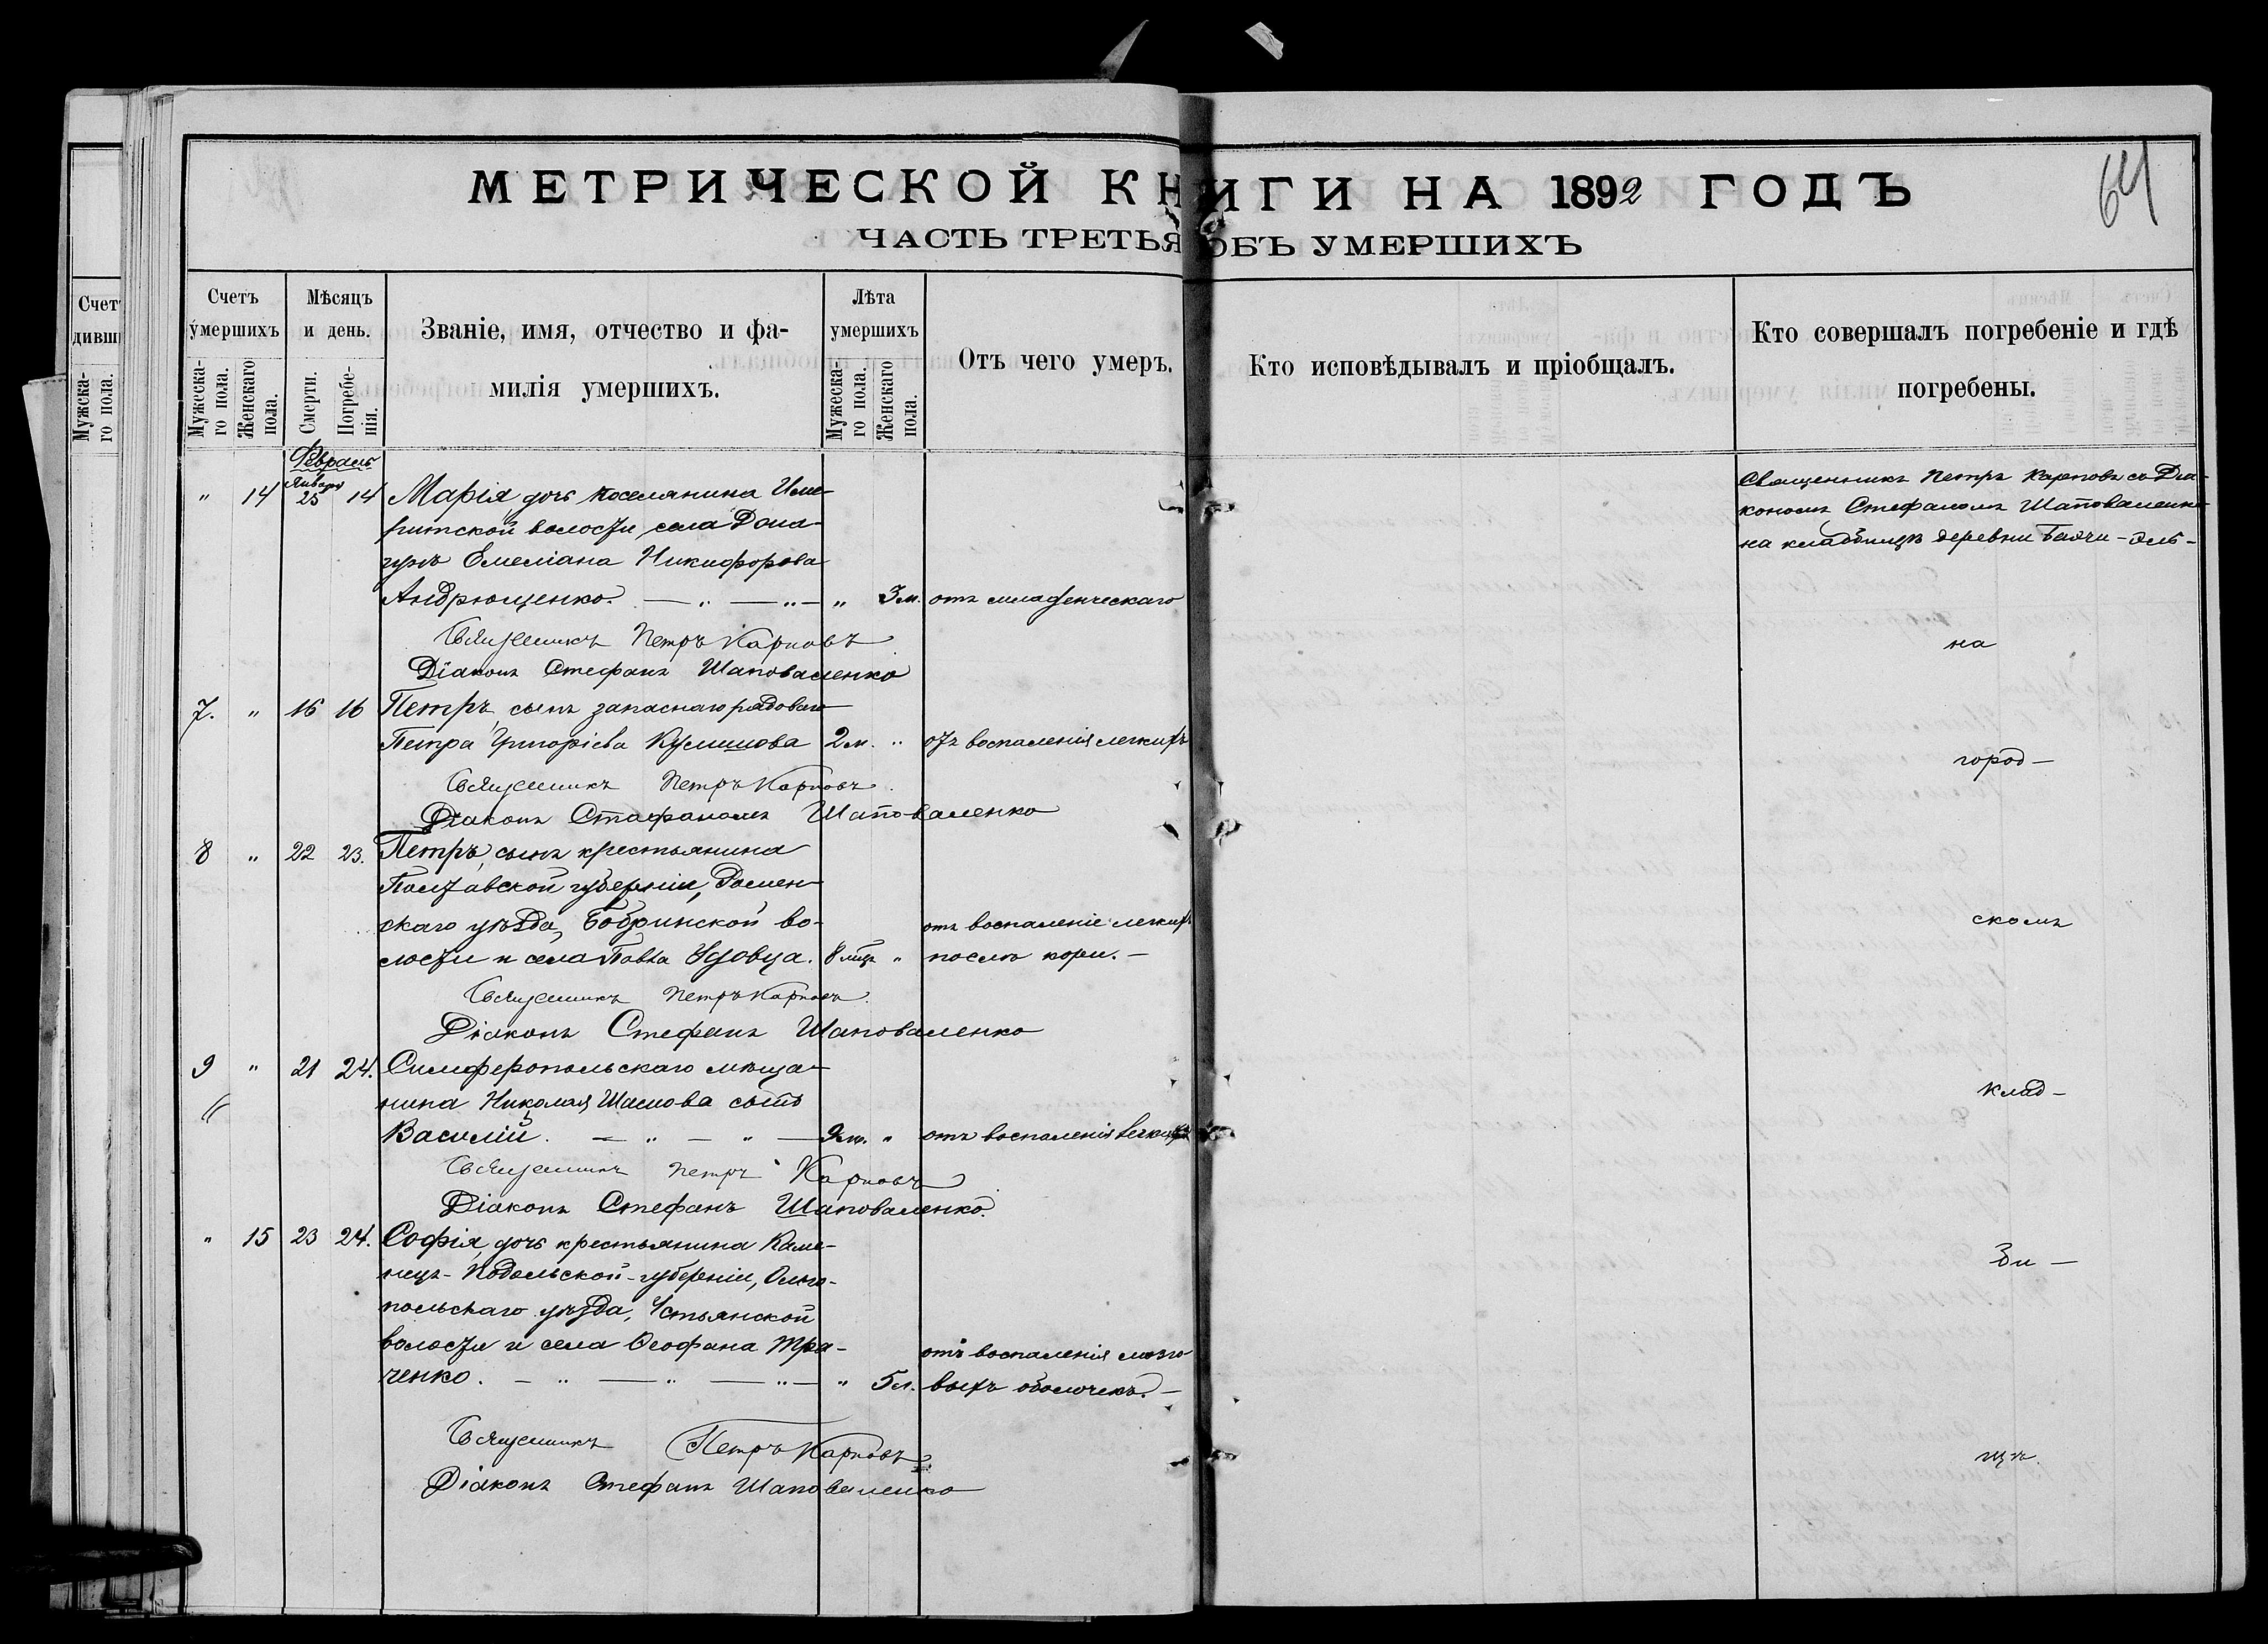 МЕТРИЧЕСКОЙ КНИГИ НА 1892 ГОДЪ
64
ЧАСТЬ ТРЕТЬЯ ОБЪ УМЕРШИХЪ
Счетъ умершихъ
Мужеска-го пола.
Женскаго пола.
Мѣсяцъ и день.
Смерти.
Погребе-нія.
Званіе, имя, отчество и фа-
милія умершихъ.
Лѣта умершихъ
Мужеска-го пола.
Женскаго пола.
Отъ чего умеръ.
Кто исповѣдывалъ и пріобщалъ.
Кто совершалъ погребеніе и гдѣ
погребены.
Февраль
Января
" 14 25 14 Марія дочь поселянина
волости, села
Емеліана Никифорова
Андрющенко. " 3 м. отъ младенческаго
Священникъ Петръ Карповъ съ Діа-
кономъ Стефаномъ Шаповаленко
на кладбищѣ деревни
Священникъ Петръ Карповъ
Діаконъ Стефанъ Шаповаленко
на
7. " 16 16 Петръ, сынъ запаснаго рядоваго
Петра Григоріева 2 м. " отъ воспаленія легкихъ
Священникъ Петръ Карповъ
Діаконъ Стефаномъ Шаповаленко
город-
8 " 22 23. Петръ, сынъ крестьянина
Полтавской губерніи, Ромен-
скаго уѣзда, Бобринской во-
лости и села Павла Удовца. 8 мѣс. "
отъ воспаленіе легкихъ
послѣ кори. -
Священникъ Петръ Карповъ
Діаконъ Стефанъ Шаповаленко
скомъ
9 " 21 24. Симферопольскаго мѣща-
нина Николая сынъ
Василій. " отъ воспаленія легкихъ
Священникъ Петръ Карповъ
Діаконъ Стефанъ Шаповаленко.
клад-
" 15 23 24. Софія, дочь крестьянина Каме-
нецъ-Подольской-губерніи, Ольго-
польскаго уѣзда, Устьянской
волости и села Ѳеофана Тра-
ченко. " 5 л.
отъ воспаленія мозго
выхъ оболочекъ. -
Священникъ Петръ Карповъ
Діаконъ Стефанъ Шаповаленко
би -
щѣ.
Счетъ
дивши
Мужска-го пола.